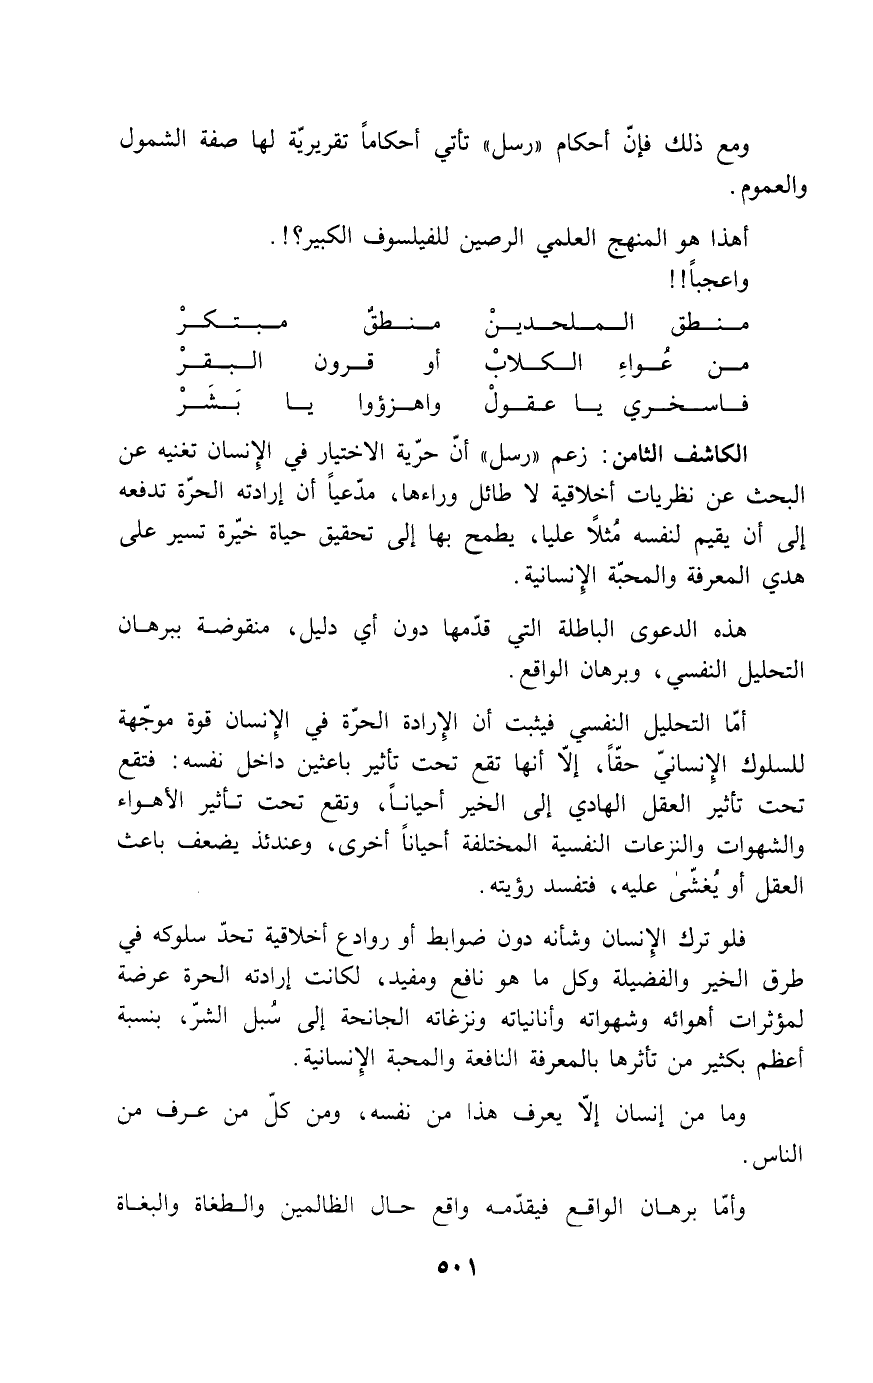 ومع ذلك فإنّ أحكام «رسل» تأتي أحكاماً تقريريّة لها صفة الشمول
والعموم.
أهذا هو المنهج العلمي الرصين للفيلسوف الكبير؟!.
واعجباً!!
منطق الملحدينْ منطقٌ مبتكرْ
من عُواءِ الكلابْ أو قرون البقرْ
فاسخري يا عقولْ واهزؤوا يا بَشَرْ
الكاشف الثامن: زعم «رسل» أنّ حرّية الاختيار في الإنسان تغنيه عن
البحث عن نظريات أخلاقية لا طائل وراءها، مدّعياً أن إرادته الحرّة تدفعه
إلى أن يقيم لنفسه مُثلاً عليا، يطمح بها إلى تحقيق حياة خيّرة تسير على
هدي المعرفة والمحبّة الإنسانية.
هذه الدعوى الباطلة التي قدّمها دون أي دليل، منقوضة ببرهان
التحليل النفسي، وبرهان الواقع.
أمّا التحليل النفسي فيثبت أن الإرادة الحرّة في الإنسان قوة موجّهة
للسلوك الإنسانيّ حقّاً، إلاّ أنها تقع تحت تأثير باعثين داخل نفسه: فتقع
تحت تأثير العقل الهادي إلى الخير أحياناً، وتقع تحت تأثير الأهواء
والشهوات والنزعات النفسية المختلفة أحياناً أخرى، وعندئذ يضعف باعث
العقل أو يُغشّىٰ عليه، فتفسد رؤيته.
فلو ترك الإنسان وشأنه دون ضوابط أو روادع أخلاقية تحدّ سلوكه في
طرق الخير والفضيلة وكل ما هو نافع ومفيد، لكانت إرادته الحرة عرضة
لمؤثرات أهوائه وشهواته وأنانياته ونزغاته الجانحة إلى سُبل الشرّ، بنسبة
أعظم بكثير من تأثرها بالمعرفة النافعة والمحبة الإنسانية.
وما من إنسان إلاّ يعرف هذا من نفسه، ومن كلّ من عرف من
الناس.
وأمّا برهان الواقع فيقدّمه واقع حال الظالمين والطغاة والبغاة
٥٠١